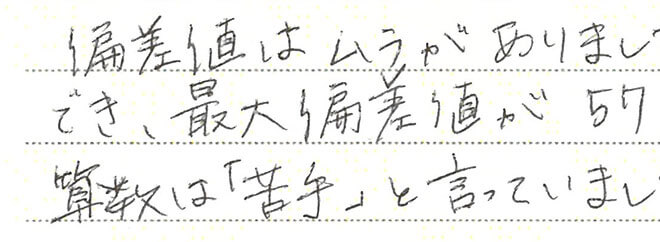 偏差値はムラがありまし
でき、最大偏差値が57
算数は「苦手」と言っていまし